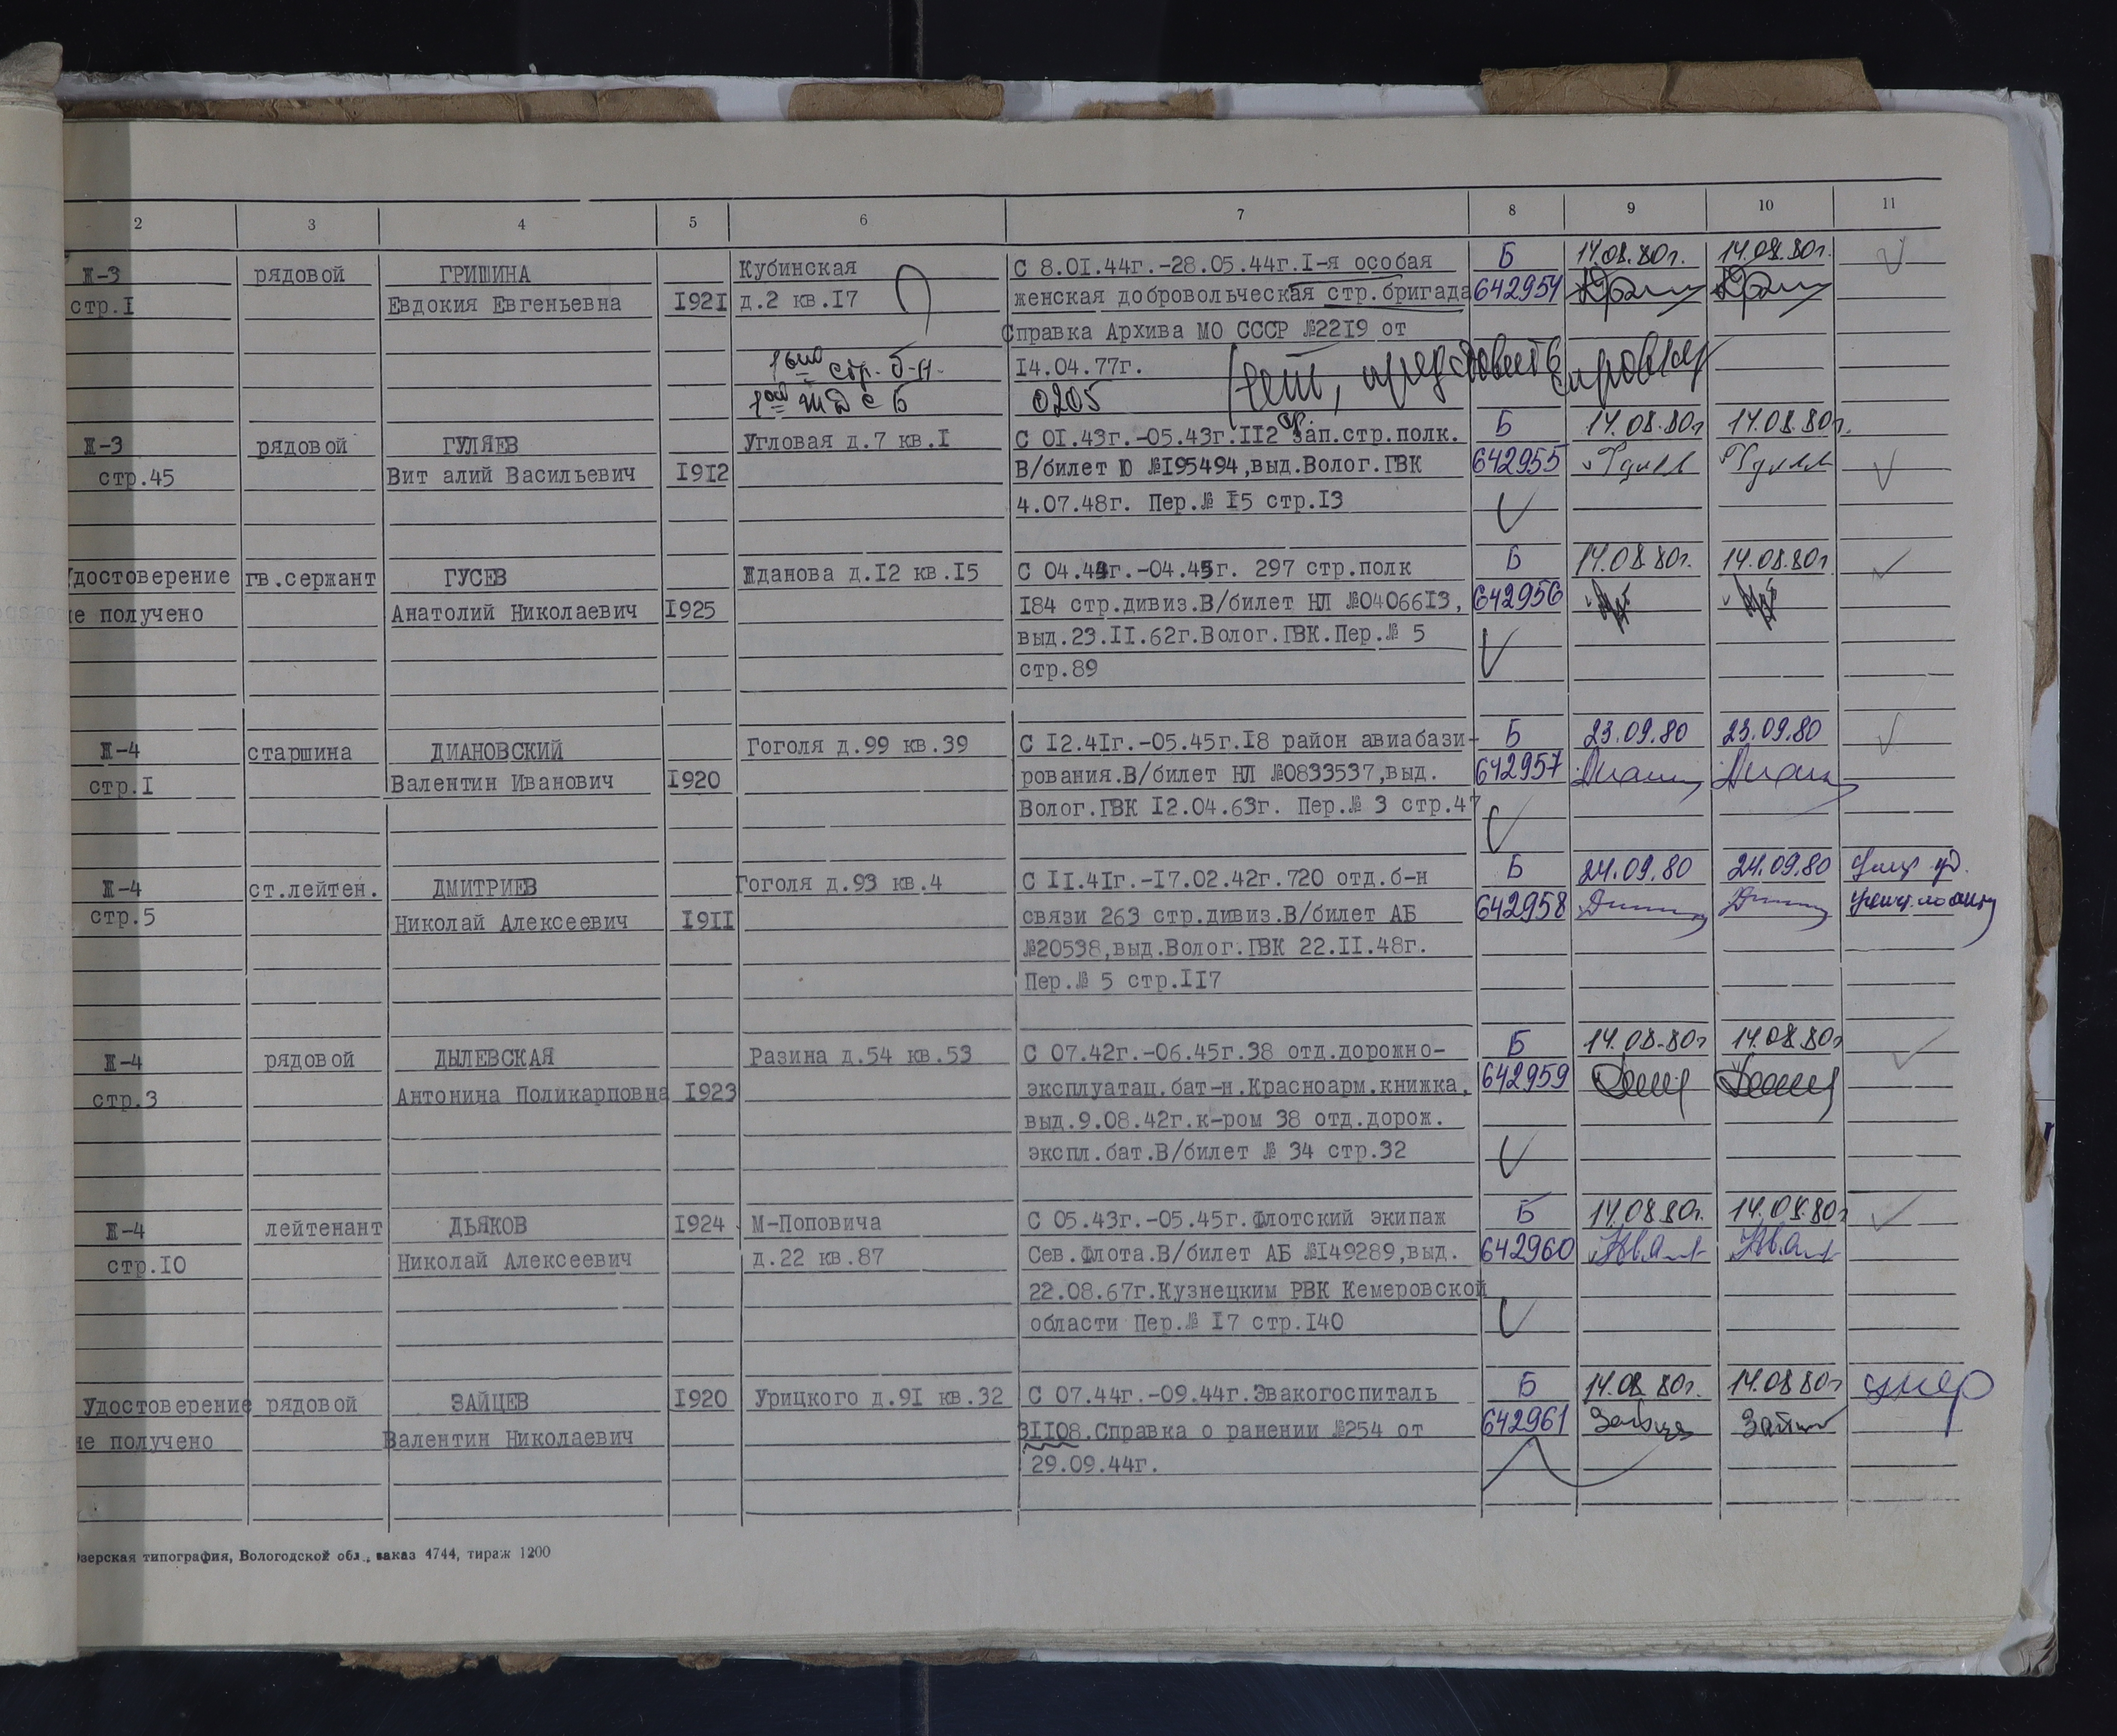 2 3 4 5 6 7 8 9 10 11
Ж-3 рядовой ГРИШИНА Кубинская С 8.01.44г.-28.05.44г.I-я особая Б 14.08.80г. 14.08.80г.
стр.I Евдокия Евгеньевна I92I д.2 кв.I7 женская добровольческая стр.бригада 642954
Справка Архива МО СССР №22I9 от
стр. б-н. I4.04.77г.
0205
Ж-3 рядовой ГУЛЯЕВ Угловая д.7 кв.I С 0I.43г.-05.43г.II2 зап.стр.полк. Б 14.08.80г 14.08.80г.
стр.45 Вит алий Васильевич I9I2 В/билет Ю №I95494,выд.Волог.ГВК 642955
4.07.48г. Пер.№ I5 стр.I3
Удостоверение гв.сержант ГУСЕВ Жданова д.I2 кв.I5 С 04.43г.-04.45г. 297 стр.полк Б 14.08.80г. 14.08.80г
не получено Анатолий Николаевич I925 I84 стр.дивиз.В/билет НЛ №04066I3, 642956
выд.23.II.62г.Волог.ГВК.Пер.№ 5
стр.89
Ж-4 старшина ДИАНОВСКИЙ Гоголя д.99 кв.39 С I2.4Iг.-05.45г.I8 район авиабази- Б 23.09.80 23.09.80
стр.I Валентин Иванович I920 рования.В/билет НЛ №0833537,выд. 642957
Волог.ГВК I2.04.63г. Пер.№ 3 стр.47
Ж-4 ст.лейтен. ДМИТРИЕВ Гоголя д.93 кв.4 С II.4Iг.-I7.02.42г.720 отд.б-н Б 24.09.80 24.09.80
стр.5 Николай Алексеевич I9II связи 263 стр.дивиз.В/билет АБ 642958
№20538,выд.Волог.ГВК 22.II.48г.
Пер.№ 5 стр.II7
Ж-4 рядовой ДЫЛЕВСКАЯ Разина д.54 кв.53 С 07.42г.-06.45г.38 отд.дорожно- Б 14.08.80г 14.08.80г
стр.3 Антонина Поликарповна I923 эксплуатац.бат-н.Красноарм.книжка, 642959
выд.9.08.42г.к-ром 38 отд.дорож.
экспл.бат.В/билет № 34 стр.32
Ж-4 лейтенант ДЬЯКОВ I924 М-Поповича С 05.43г.-05.45г.Флотский экипаж Б 14.08.80г. 14.08.80г
стр.I0 Николай Алексеевич д.22 кв.87 Сев.Флота.В/билет АБ №I49289,выд. 642960
22.08.67г.Кузнецким РВК Кемеровской
области Пер.№ I7 стр.I40
Удостоверение рядовой ЗАЙЦЕВ I920 Урицкого д.9I кв.32 С 07.44г.-09.44г.Эвакогоспиталь Б 14.08.80г. 14.08.80г умер
не получено Валентин Николаевич 3II08.Справка о ранении №254 от 642961
29.09.44г.
Озерская типография, Вологодской обл., заказ 4744, тираж 1200